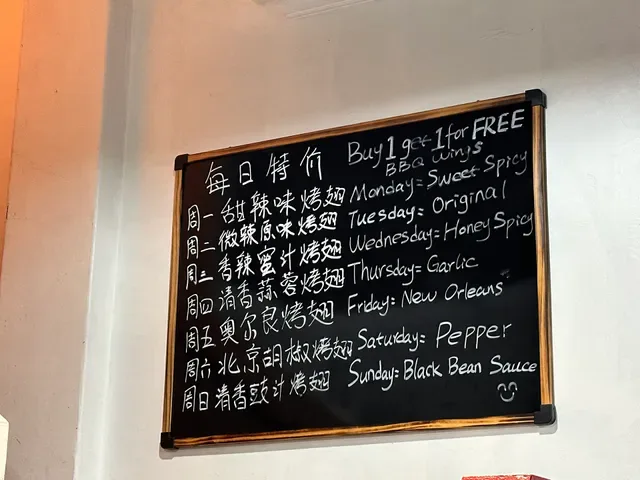 每日特价
周一甜辣味烤翅
周二微辣原味烤翅
周三香辣蜜汁烤翅
周四清香蒜蓉烤翅
周五奥尔良烤翅
周六北京胡椒烤翅
周日清香豉汁烤翅
Buy 1 get 1 for FREE
BBQ wings
Monday: Sweet Spicy
Tuesday: Original
Wednesday: Honey Spicy
Thursday: Garlic
Friday: New Orleans
Saturday: Pepper
Sunday: Black Bean Sauce